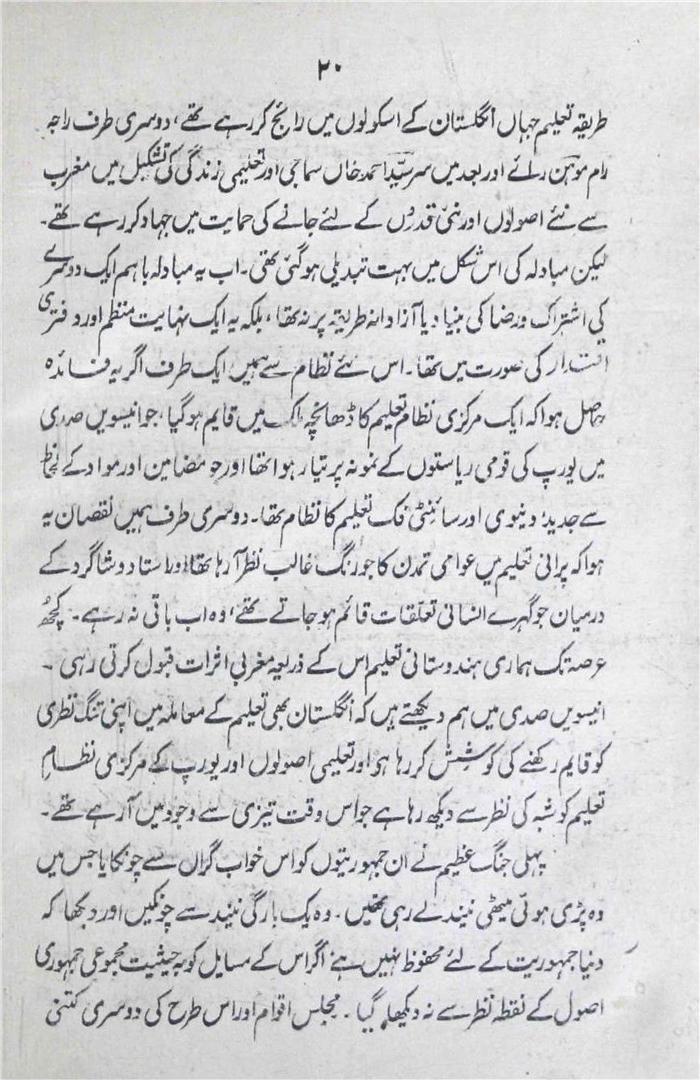 ۲۰
طریقہ تعلیم جہاں انگلستان کے اسکولوں میں رائج کر رہے تھے، دوسری طرف راجہ
رام موہن رائے اور بعد میں سر سید احمد خاں سماجی اور تعلیمی زندگی کی تشکیل میں مغرب
سے نئے اصولوں اور نئی قدروں کے لئے جانے کی حمایت میں جہاد کر رہے تھے۔
لیکن مبادلہ کی اس شکل میں بہت تبدیلی ہو گئی تھی۔ اب یہ مبادلہ باہم ایک دوسرے
کی اشتراک و رضا کی بنیاد یا آزادانہ طریقہ پر نہ تھا، بلکہ یہ ایک نہایت منظم اور دفتری
اقتدار کی صورت میں تھا۔ اس نئے نظام سے ہمیں ایک طرف اگر یہ فائدہ
حاصل ہوا کہ ایک مرکزی نظام تعلیم کا ڈھانچہ میں قایم ہو گیا، جو انیسویں صدی
میں یورپ کی قومی ریاستوں کے نمونہ پر تیار ہوا تھا اور جو مضامین اور مواد کے لحاظ
سے جدید، دنیوی اور سائنٹی فک تعلیم کا نظام تھا۔ دوسری طرف ہمیں نقصان یہ
ہوا کہ پرانی تعلیم میں عوامی تمدن کا جو رنگ غالب نظر آ رہا تھا اور استاد و شاگرد کے
درمیان جو گہرے انسانی تعلقات قائم ہو جاتے تھے، وہ اب باقی نہ رہے۔ کچھ
عرصہ تک ہماری ہندوستانی تعلیم اس کے ذریعہ مغربی اثرات قبول کرتی رہی۔
انیسویں صدی میں ہم دیکھتے ہیں کہ انگلستان بھی تعلیم کے معاملہ میں اپنی تنگ نظری
کو قایم رکھنے کی کوشش کر رہا ہو اور تعلیمی اصولوں اور یورپ کے مرکزی نظام
تعلیم کو شبہ کی نظر سے دیکھ رہا ہے جو اس وقت تیزی سے وجود میں آ رہے تھے۔
پہلی جنگ عظیم نے ان جمہوریتوں کو اس خواب گراں سے چونکایا جس میں
وہ پڑی ہوئی میٹھی نیند لے رہی تھیں۔ وہ یک بارگی نیند سے چونکیں اور دیکھا کہ
دنیا جمہوریت کے لئے محفوظ نہیں ہے اگر اس کے مسایل کو بہ حیثیت مجموعی جمہوری
اصول کے نقطہ نظر سے نہ دیکھا گیا۔ مجلس اقوام اور اس طرح کی دوسری کتنی